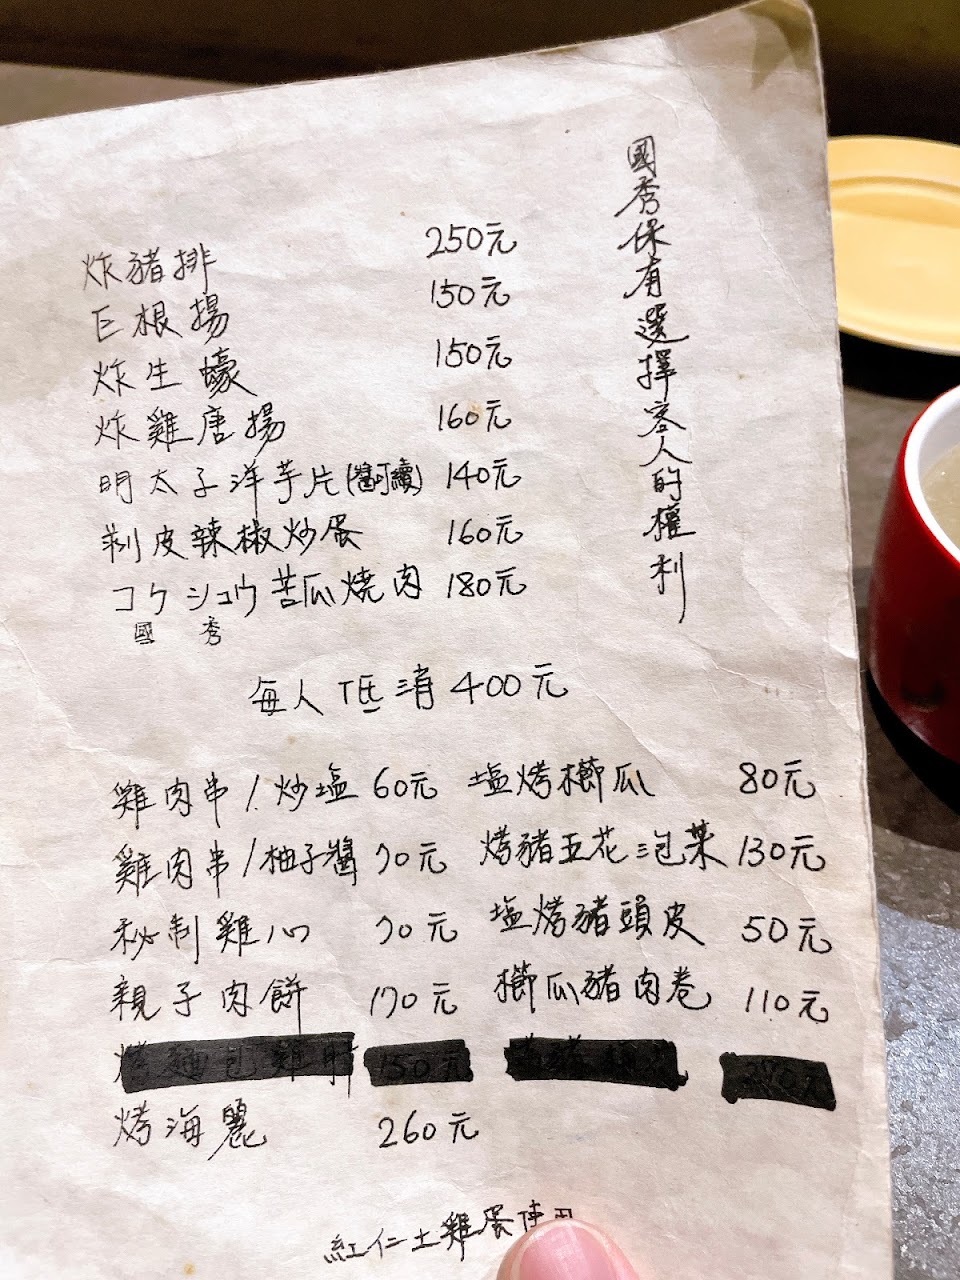 國秀保有選擇客人的權利
炸豬排 250元
巨根揚 150元
炸生蠔 150元
炸雞唐揚 160元
明太子洋芋片(醬可續) 140元
剝皮辣椒炒蛋 160元
コケショウ苦瓜燒肉 180元
國秀
每人低消400元
雞肉串/炒塩 60元 塩烤櫛瓜 80元
雞肉串/柚子醬 70元 烤豬五花泡菜 130元
秘制雞心 70元 塩烤豬頭皮 50元
親子肉餅 170元 櫛瓜豬肉卷 110元
150元 270元
烤海麗 260元
紅仁土雞蛋使用